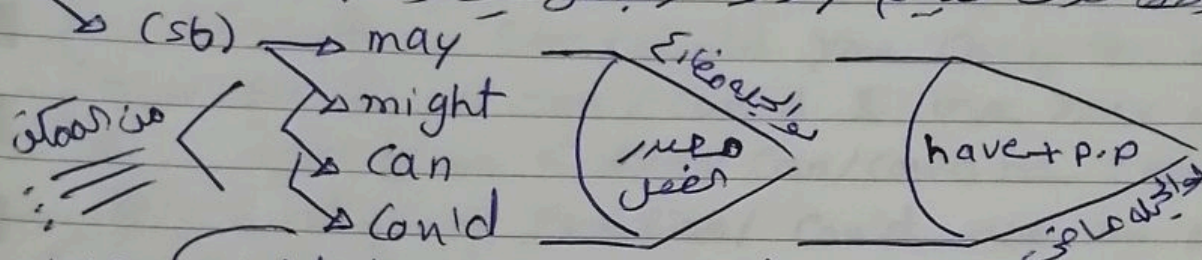 (sb) → may
might
can
could
من الممكن
لو الجملة مضارع
مصدر
الفعل
have + p.p
لو الجملة ماضي